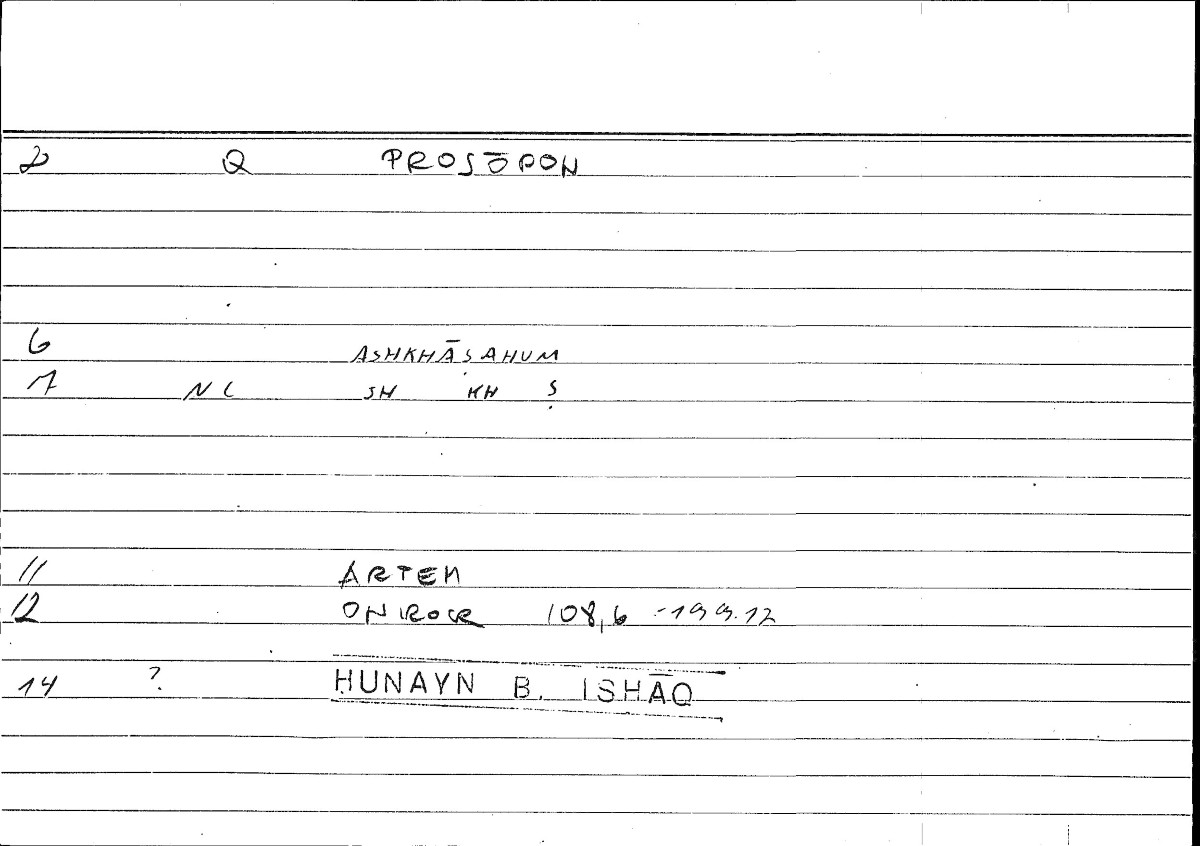 2 Q PROSŌPON
6 ASHKHĀṢAHUM
7 NC SH KH Ṣ
11 ARTEM
12 ONIROCR 108,6 - 199.12
14 ? ḤUNAYN B. ISḤĀQ